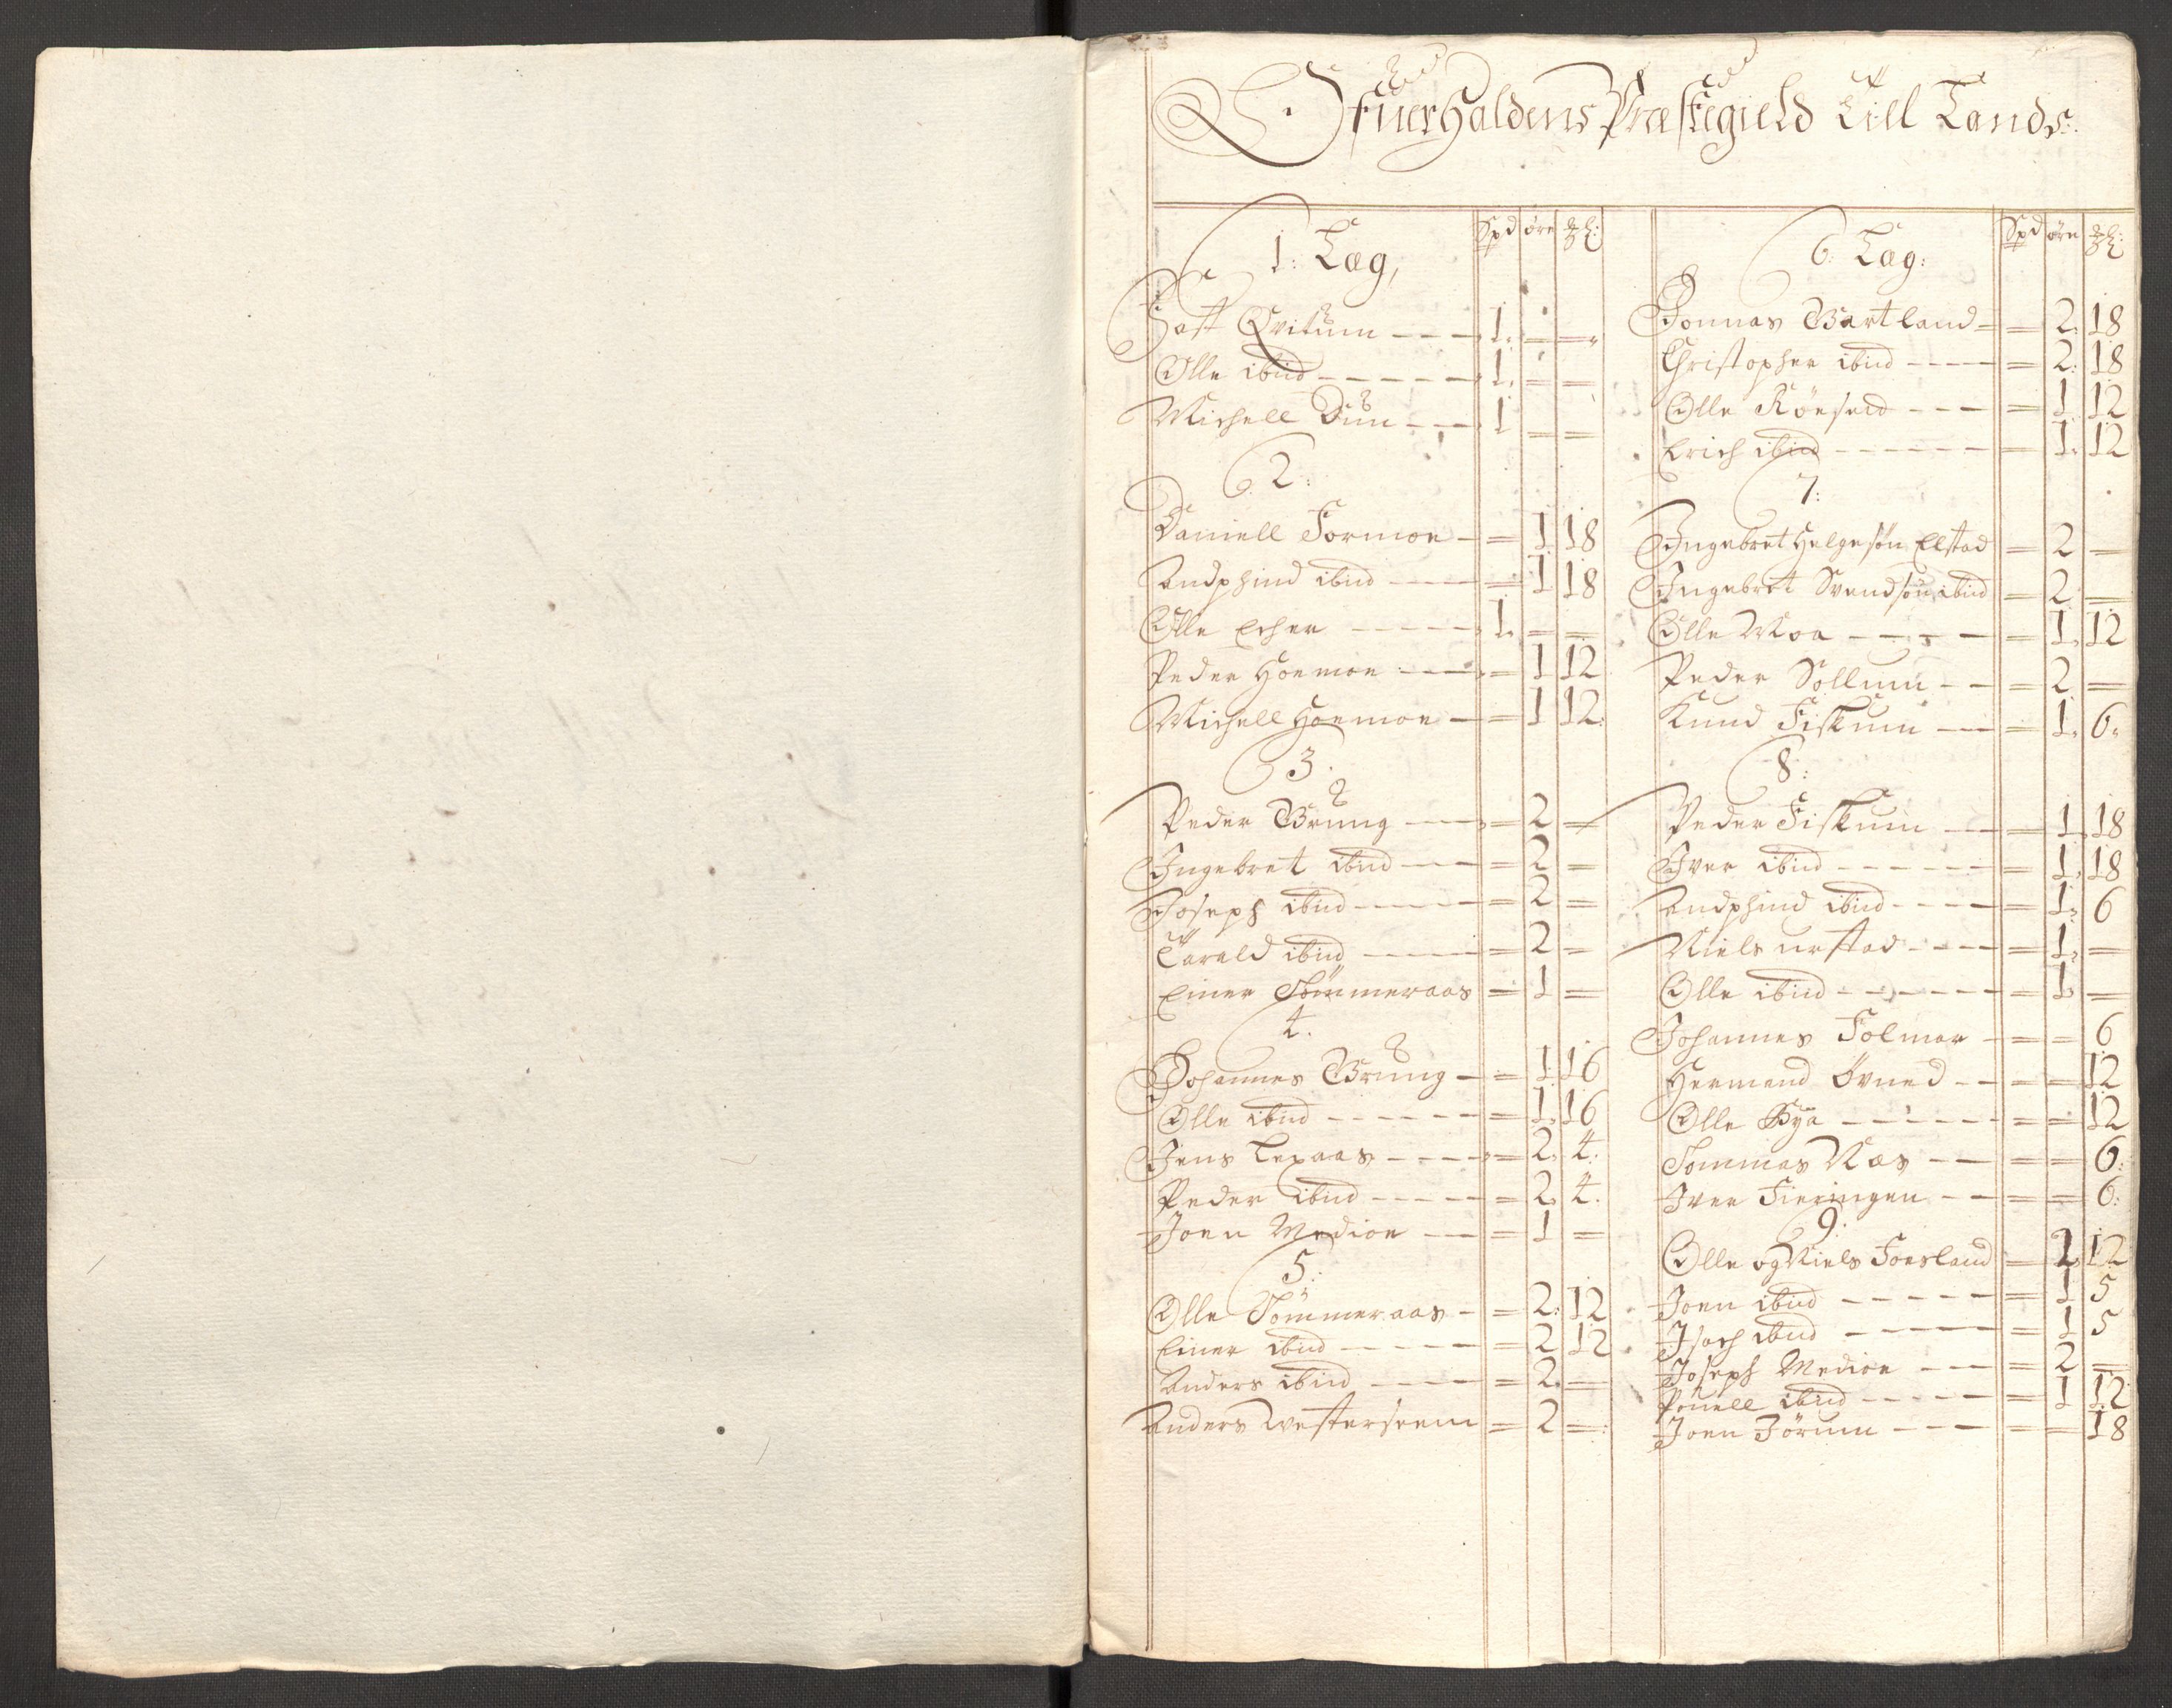 Ofuerhaldens Præstegield till Lands:
1: Læg, Spd øre
Ollle ibid - - - - - 1. = =
Michell Dun - - - 1 = =
2:
Daniell Formoe - = 1 18
Andphind ibid - - - = 1 18
Olle Echer - - - - - 1. = =
Peder Hoemoe - - - = 1 12
Michell Hoemoe - = 1 12:
3.
Peder Grung - - - = 2 =
Ingebret ibid - - - = 2 =
Joseph ibid - - - - = 2 =
Tarald ibid - - - - = 2 =
Einer Tömmeraas = 1 =
4.
Johannes Grung - = 1 16
Olle ibid - - - - - - = 1. 16
Jens Lexaas - - - - = 2. 4.
Peder ibid - - - - - = 2. 4.
Joen Medioe - - - = 1 =
5:
Olle Tömmeraas - = 2: 12
Einer ibid - - - - - = 2 12
Anders ibid - - - - = 2. =
Anders Westerseem = 2 =
6: Læg: Spd øre
Jonnas Gartland - = 2. 18
Christopher ibid - - - - = 2: 18
Olle Röeseid - - - = 1. 12
Erich ibid - - - - - - = 1. 12
7:
Ingebret Helgesøn Elstad = 2 =
Ingebret Svendsøn ibid = 2 =
Olle Moa - - - - = 1. 12
Peder Sollum - - = 2 =
Knud Fiskum - - = 1. 6.
8:
Peder Fiskum - - = 1. 18
Iver ibid - - - - - - = 1. 18
Andphind ibid - - - - = 1. 6
Niels urstad - - - - = 1. =
Olle ibid - - - - - - = 1. =
Johannes Folmar - = = 6
Hermand Övned - - = = 12
Olle Bya - - - - - - = = 12
Tommas Næs - - = = 6:
Iver Fieringen - - = = 6:
9:
Olle og Niels Foesland = 2. 12
Joen ibid - - - - - = 1 5
Isach ibid - - - - - = 1 5
Joseph Medioe - - - = 2 =
Pouell ibid - - - - = 1 12
Joen Jörum - - - = = 18